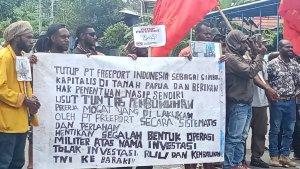 TUTUP PT FREEPORT INDONESIA SEBAGAI
KAPITALIS DI TANAH PAPUA DAN BERIKAN
HAK PENENTUAN NASIP SENDIRI
USUT TUNTAS PEMBUNUHAN
PEKERJA YANG DI LAKUKAN
OLEH PT FREEPORT SECARA SISTEMATIS
DAN TERLAHAN
HENTIKAN SEGALAH BENTUK OPERASI
MILITER ATAS NAMA INVESTASI
TOLAK INVESTASI, DAN KEMBALIKAN
TNI KE BARAK!!